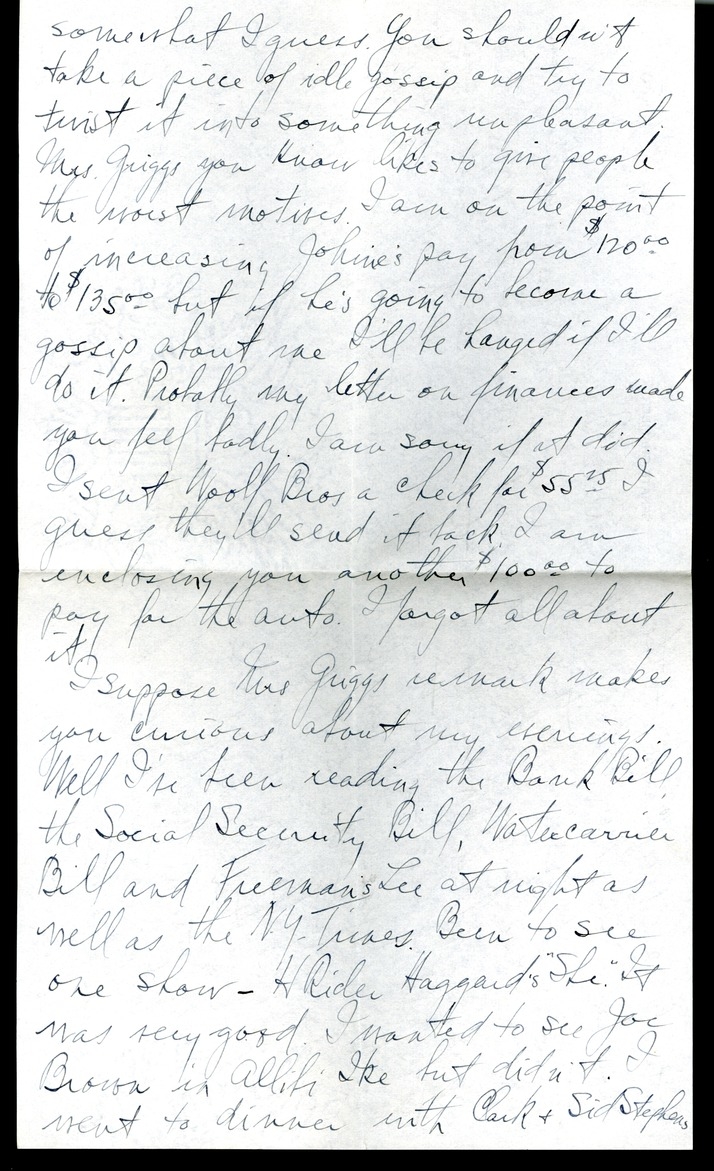 somewhat I guess. You shouldn't
take a piece of idle gossip and try to
twist it into something unpleasant.
Mrs. Griggs you know likes to give people
the worst motives. I am on the point
of increasing Johnie's pay from $120.00
to $135.00 but if he's going to become a
gossip about me I'll be hanged if I'll
do it. Probably my letter on finances made
you feel badly. I am sorry if it did.
I sent Woolf Bros a check for $55.25 I
guess they'll send it back. I am
enclosing you another $100.00 to
pay for the auto. I forgot all about
it.
I suppose Mrs Griggs remark makes
you curious about my evenings.
Well I've been reading the Bank Bill,
the Social Security Bill, Watercarrier
Bill and Freeman's Lee at night as
well as the N.Y. Times. Been to see
one show - H Rider Haggard's "She." It
was very good. I wanted to see Joe
Brown in Allibi Ike but didn't. I
went to dinner with Clark & Sid Stephens